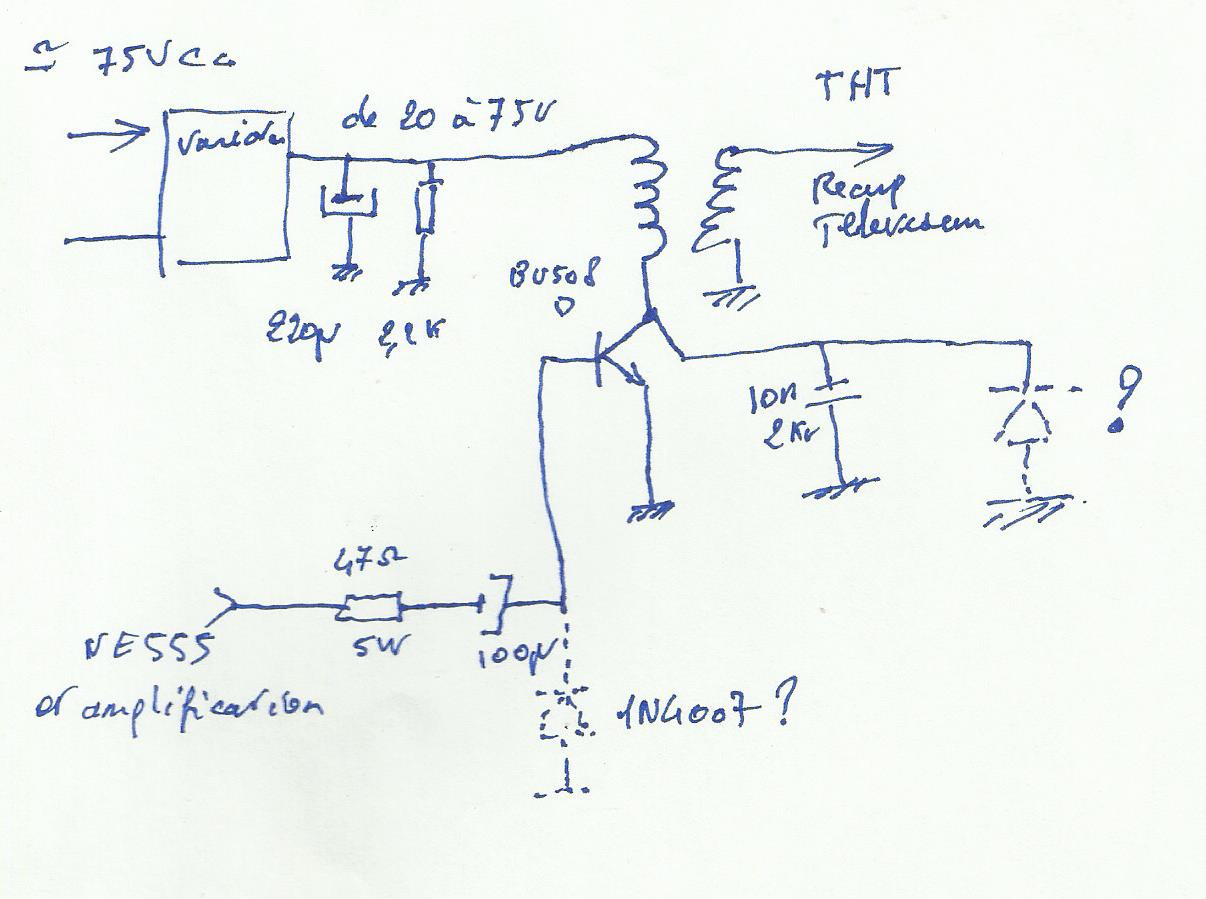 ≃ 75V
de 20 à 75V
THT
Recup
220µ
2,2K
BU508
D
10n
2Kv
?
47Ω
5W
100µ
NE555
et amplification
1N4007 ?